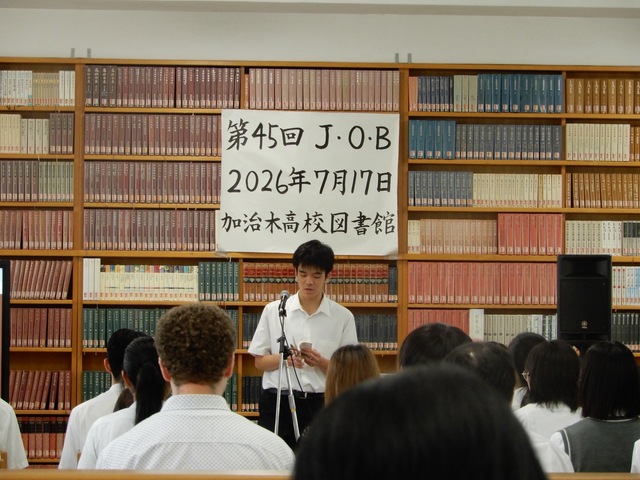 第45回 J・O・B
2026年7月17日
加治木高校図書館